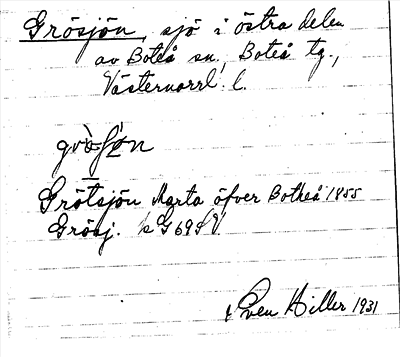 Grösjön, sjö i östra delen
av Boteå sn, Boteå tg.,
Västernorrl. l.
Grötsjön Karta öfver Botheå 1855
Grösj.
Sven Hiller 1931